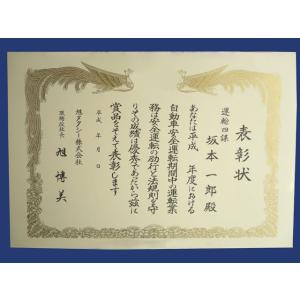 表彰状
運輸四課
坂本一郎殿
あなたは平成　年度における
自動車安全運転期間中の運転業
務は安全運転の励行と法規則を守
りその成績は優秀であったから茲に
賞品をそえて表彰します
平成　年　月　日
旭タクシー株式会社
取締役社長
旭博美